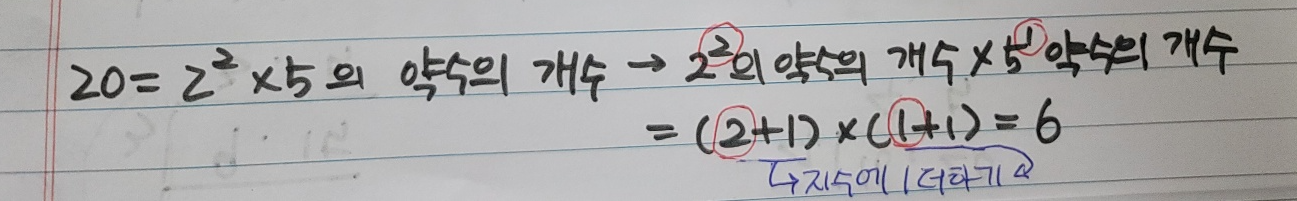 20 = 2² × 5 의 약수의 개수 → 2²의 약수의 개수 × 5¹ 약수의 개수
= (2+1) × (1+1) = 6
↳ 지수에 1 더하기